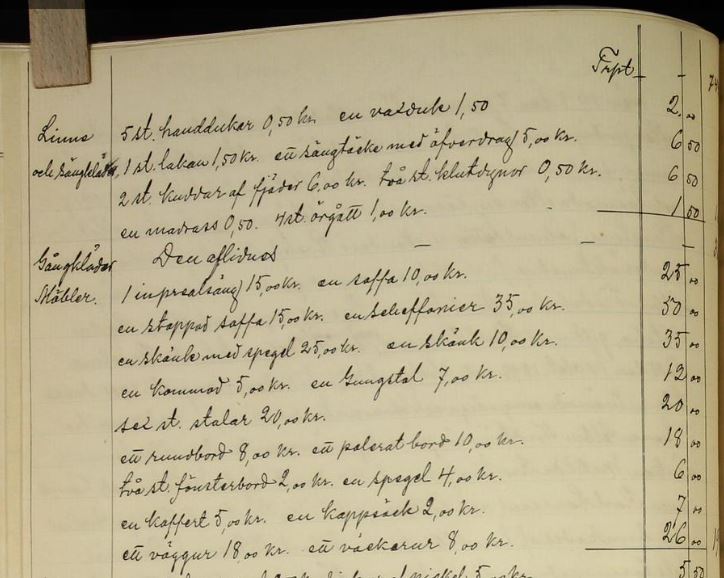 Trpt — —
Linne 5 st. handdukar 0,50 kr. en vaxduk 1,50 2,00
och sängkläder 1 st. lakan 1,50 kr. ett sängtäcke med öfverdrag 5,00 kr. 6 50
2 st. kuddar af fjäder 6,00 kr. två st. klutdynor 0,50 kr. 6 50
en madrass 0,50. 4 st. örgått 1,00 kr. 1 50
Gångkläder Den aflidnes — — —
Möbler. 1 imperialsäng 15,00 kr. en soffa 10,00 kr. 25,00
en stoppad soffa 15,00 kr. en scheffonier 35,00 kr. 50,00
en skänk med spegel 25,00 kr. en skänk 10,00 kr. 35,00
en kommod 5,00 kr. en Gungstol 7,00 kr. 12,00
sex st. stolar 20,00 kr. 20,00
ett rundbord 8,00 kr. ett polerat bord 10,00 kr. 18,00
två st. fönsterbord 2,00 kr. en spegel 4,00 kr. 6,00
en koffert 5,00 kr. en kappsäck 2,00 kr. 7,00
ett väggur 18,00 kr. ett väckarur 8,00 kr. 26,00
nickel 5,00 kr. 5 50